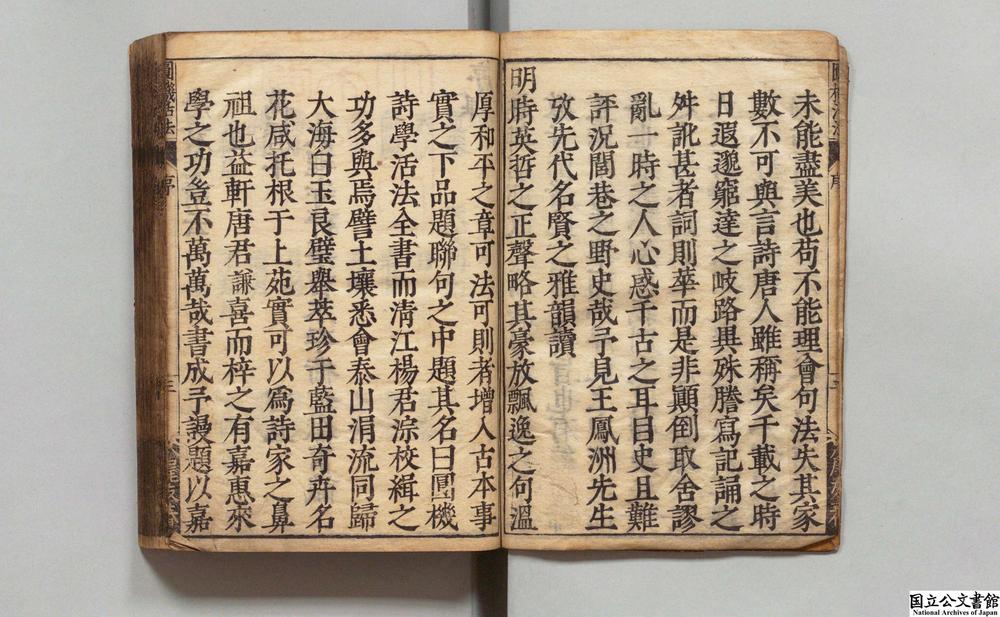 未能盡美也苟不能理會句法失其家
數不可與言詩唐人雖稱矣千載之時
日遐邈窮達之岐路異殊謄寫記誦之
舛訛甚者詞則萃而是非顛倒取舍謬
亂一時之人心惑千古之耳目史且難
評況閭巷之野史哉予見王鳳洲先生
攷先代名賢之雅韻讀
明時英哲之正聲略其豪放飄逸之句溫
厚和平之章可法可則者增入古本事
實之下品題聯句之中題其名曰圓機
詩學活法全書而清江楊君淙校緝之
功多與焉譬土壤悉會泰山涓流同歸
大海白玉良璧舉萃珍于藍田奇卉名
花咸托根于上苑實可以爲詩家之鼻
祖也益軒唐君謙喜而梓之有嘉惠來
學之功豈不萬萬哉書成予謾題以嘉
圓機活法
序
三
国立公文書館
National Archives of Japan